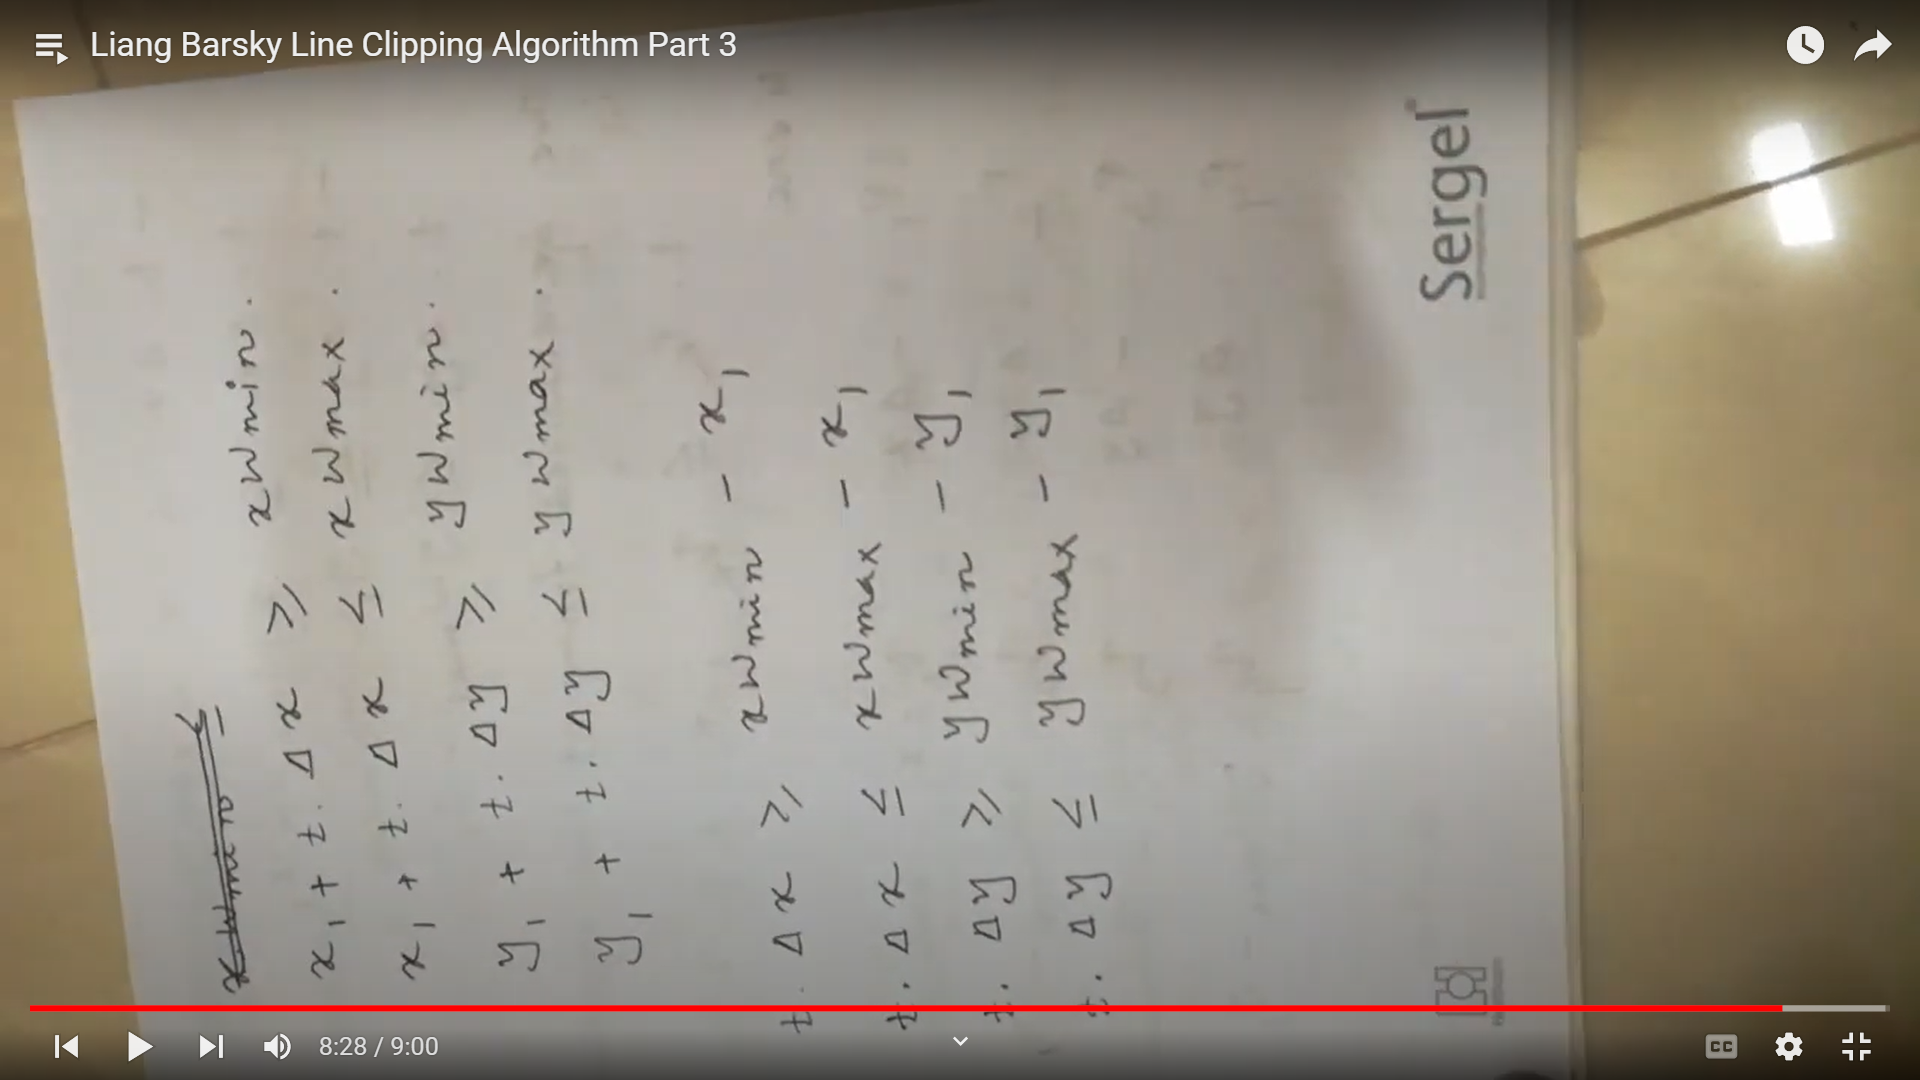 Liang Barsky Line Clipping Algorithm Part 3
x1 + t. Δx ≥ xwmin.
x1 + t. Δx ≤ xwmax.
y1 + t. Δy ≥ ywmin.
y1 + t. Δy ≤ ywmax.
t. Δx ≥ xwmin - x1
t. Δx ≤ xwmax - x1
t. Δy ≥ ywmin - y1
t. Δy ≤ ywmax - y1
Sergel
8:28 / 9:00
CC